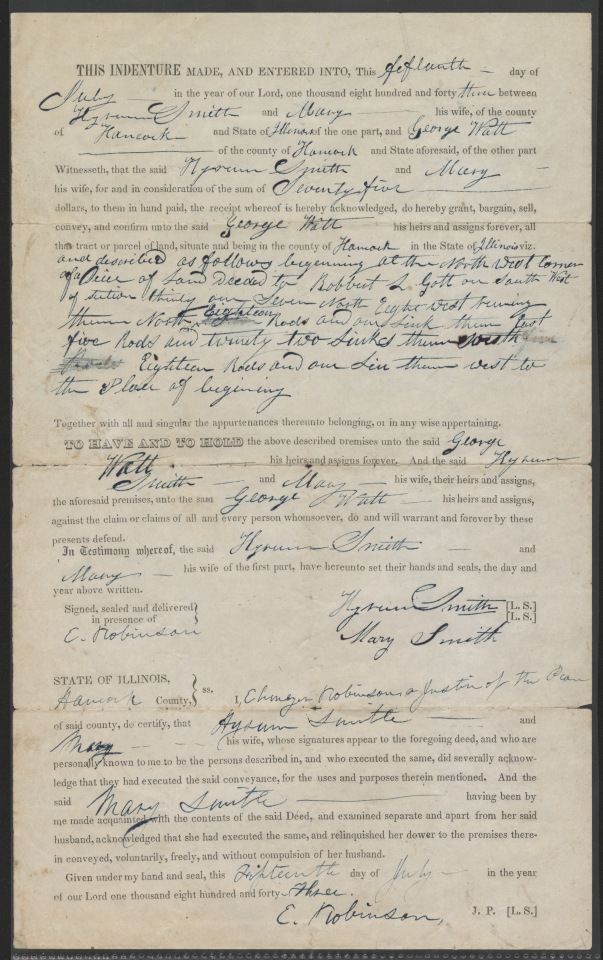 THIS INDENTURE MADE, AND ENTERED INTO, This fifteenth day of
July in the year of our Lord, one thousand eight hundred and forty three between
Hyrum Smith and Mary his wife, of the county
of Hancock and State of Illinois of the one part, and George Watt
of the county of Hancock and State aforesaid, of the other part
Witnesseth, that the said Hyrum Smith and Mary
his wife, for and in consideration of the sum of Seventy five
dollars, to them in hand paid, the receipt whereof is hereby acknowledged, do hereby grant, bargain, sell,
convey, and confirm unto the said George Watt his heirs and assigns forever, all
that tract or parcel of land, situate and being in the county of Hancock in the State of Illinois viz.
and described as follows begenning at the North West Corner
of a Piece of Land Deeded to Robbert L Gott on South West
of section thirty one Seven North Eight West runing
thence North Eighteen Rods and one Link thence East
five Rods and twenty two Links thence South
Eighteen Rods and one Link thence west to
the Place of begining
Together with all and singular the appurtenances thereunto belonging, or in any wise appertaining.
TO HAVE AND TO HOLD the above described premises unto the said George
Watt his heirs and assigns forever. And the said Hyrum
Smith and Mary his wife, their heirs and assigns,
the aforesaid premises, unto the said George Watt his heirs and assigns,
against the claim or claims of all and every person whomsoever, do and will warrant and forever by these
presents defend.
In Testimony whereof, the said Hyrum Smith and
Mary his wife of the first part, have hereunto set their hands and seals, the day and
year above written.
Signed, sealed and delivered
in presence of
E. Robinson
Hyrum Smith [L. S.]
[L. S.]
Mary Smith
STATE OF ILLINOIS,
Hancock County, ss. I, Ebenezer Robinson a Justice of the Peace
of said county, do certify, that Hyrum Smith and
Mary his wife, whose signatures appear to the foregoing deed, and who are
personally known to me to be the persons described in, and who executed the same, did severally acknow-
ledge that they had executed the said conveyance, for the uses and purposes therein mentioned. And the
said Mary Smith having been by
me made acquainted with the contents of the said Deed, and examined separate and apart from her said
husband, acknowledged that she had executed the same, and relinquished her dower to the premises there-
in conveyed, voluntarily, freely, and without compulsion of her husband.
Given under my hand and seal, this fifteenth day of July in the year
of our Lord one thousand eight hundred and forty-three.
E. Robinson, J. P. [L. S.]